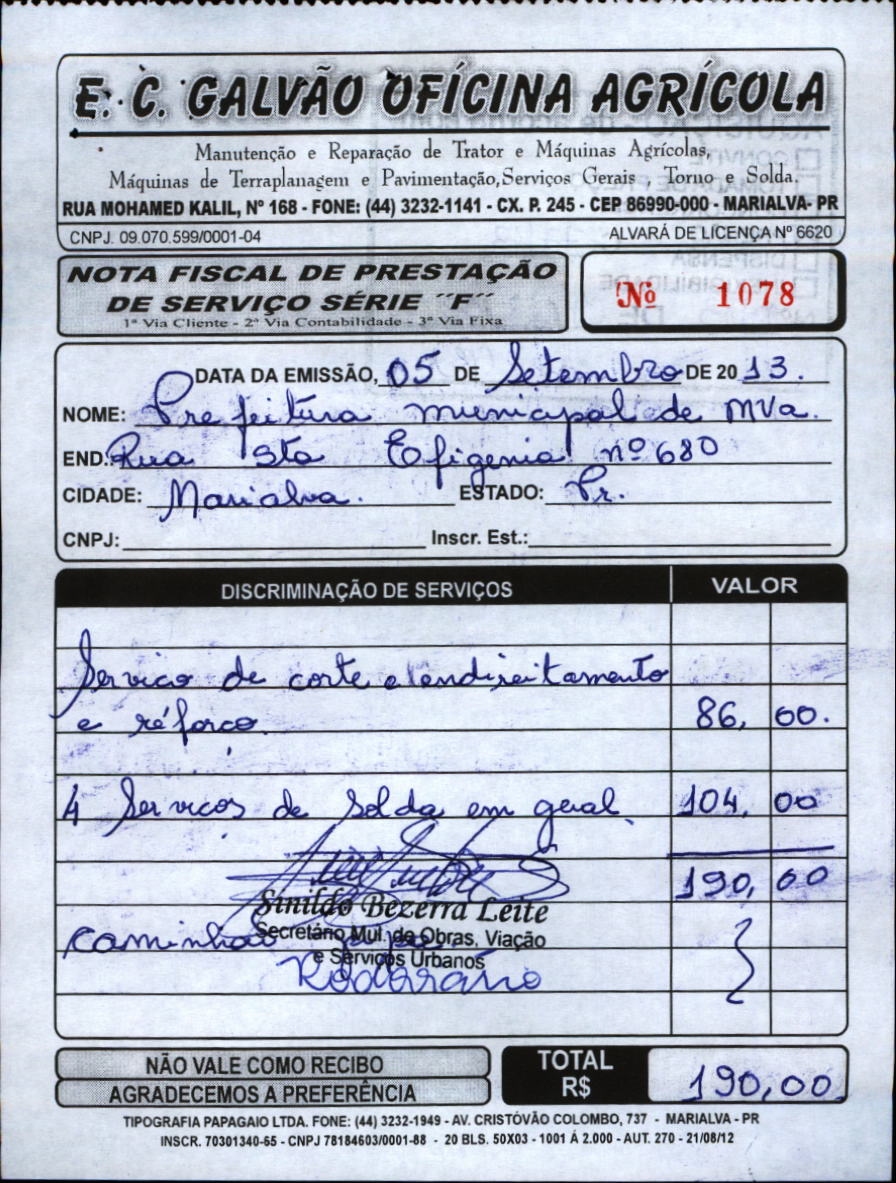 E. C. GALVÃO OFÍCINA AGRÍCOLA
Manutenção e Reparação de Trator e Máquinas Agrícolas,
Máquinas de Terraplanagem e Pavimentação, Serviços Gerais, Torno e Solda.
RUA MOHAMED KALIL, Nº 168 - FONE: (44) 3232-1141 - CX. P. 245 - CEP 86990-000 - MARIALVA- PR
CNPJ. 09.070.599/0001-04 ALVARÁ DE LICENÇA Nº 6620
NOTA FISCAL DE PRESTAÇÃO
DE SERVIÇO SÉRIE ´´F´´
1ª Via Cliente - 2ª Via Contabilidade - 3ª Via Fixa
Nº 1078
DATA DA EMISSÃO, 05 DE Setembro DE 20 13.
NOME: Prefeitura municipal de MVa.
END.: Rua Sta Efigenia nº 680
CIDADE: Marialva. ESTADO: Pr.
CNPJ: Inscr. Est.:
DISCRIMINAÇÃO DE SERVIÇOS VALOR
Servico de corte e endireitamento
e réforço. 86, 00.
4 Servicos de Solda em geral. 104, 00
190, 00
Sinildo Bezerra Leite
caminhão
Secretário Mul. de Obras, Viação
e Serviços Urbanos
Rodoviário
NÃO VALE COMO RECIBO
AGRADECEMOS A PREFERÊNCIA
TOTAL
R$ 190,00
TIPOGRAFIA PAPAGAIO LTDA. FONE: (44) 3232-1949 - AV. CRISTÓVÃO COLOMBO, 737 - MARIALVA - PR
INSCR. 70301340-65 - CNPJ 78184603/0001-88 - 20 BLS. 50X03 - 1001 Á 2.000 - AUT. 270 - 21/08/12